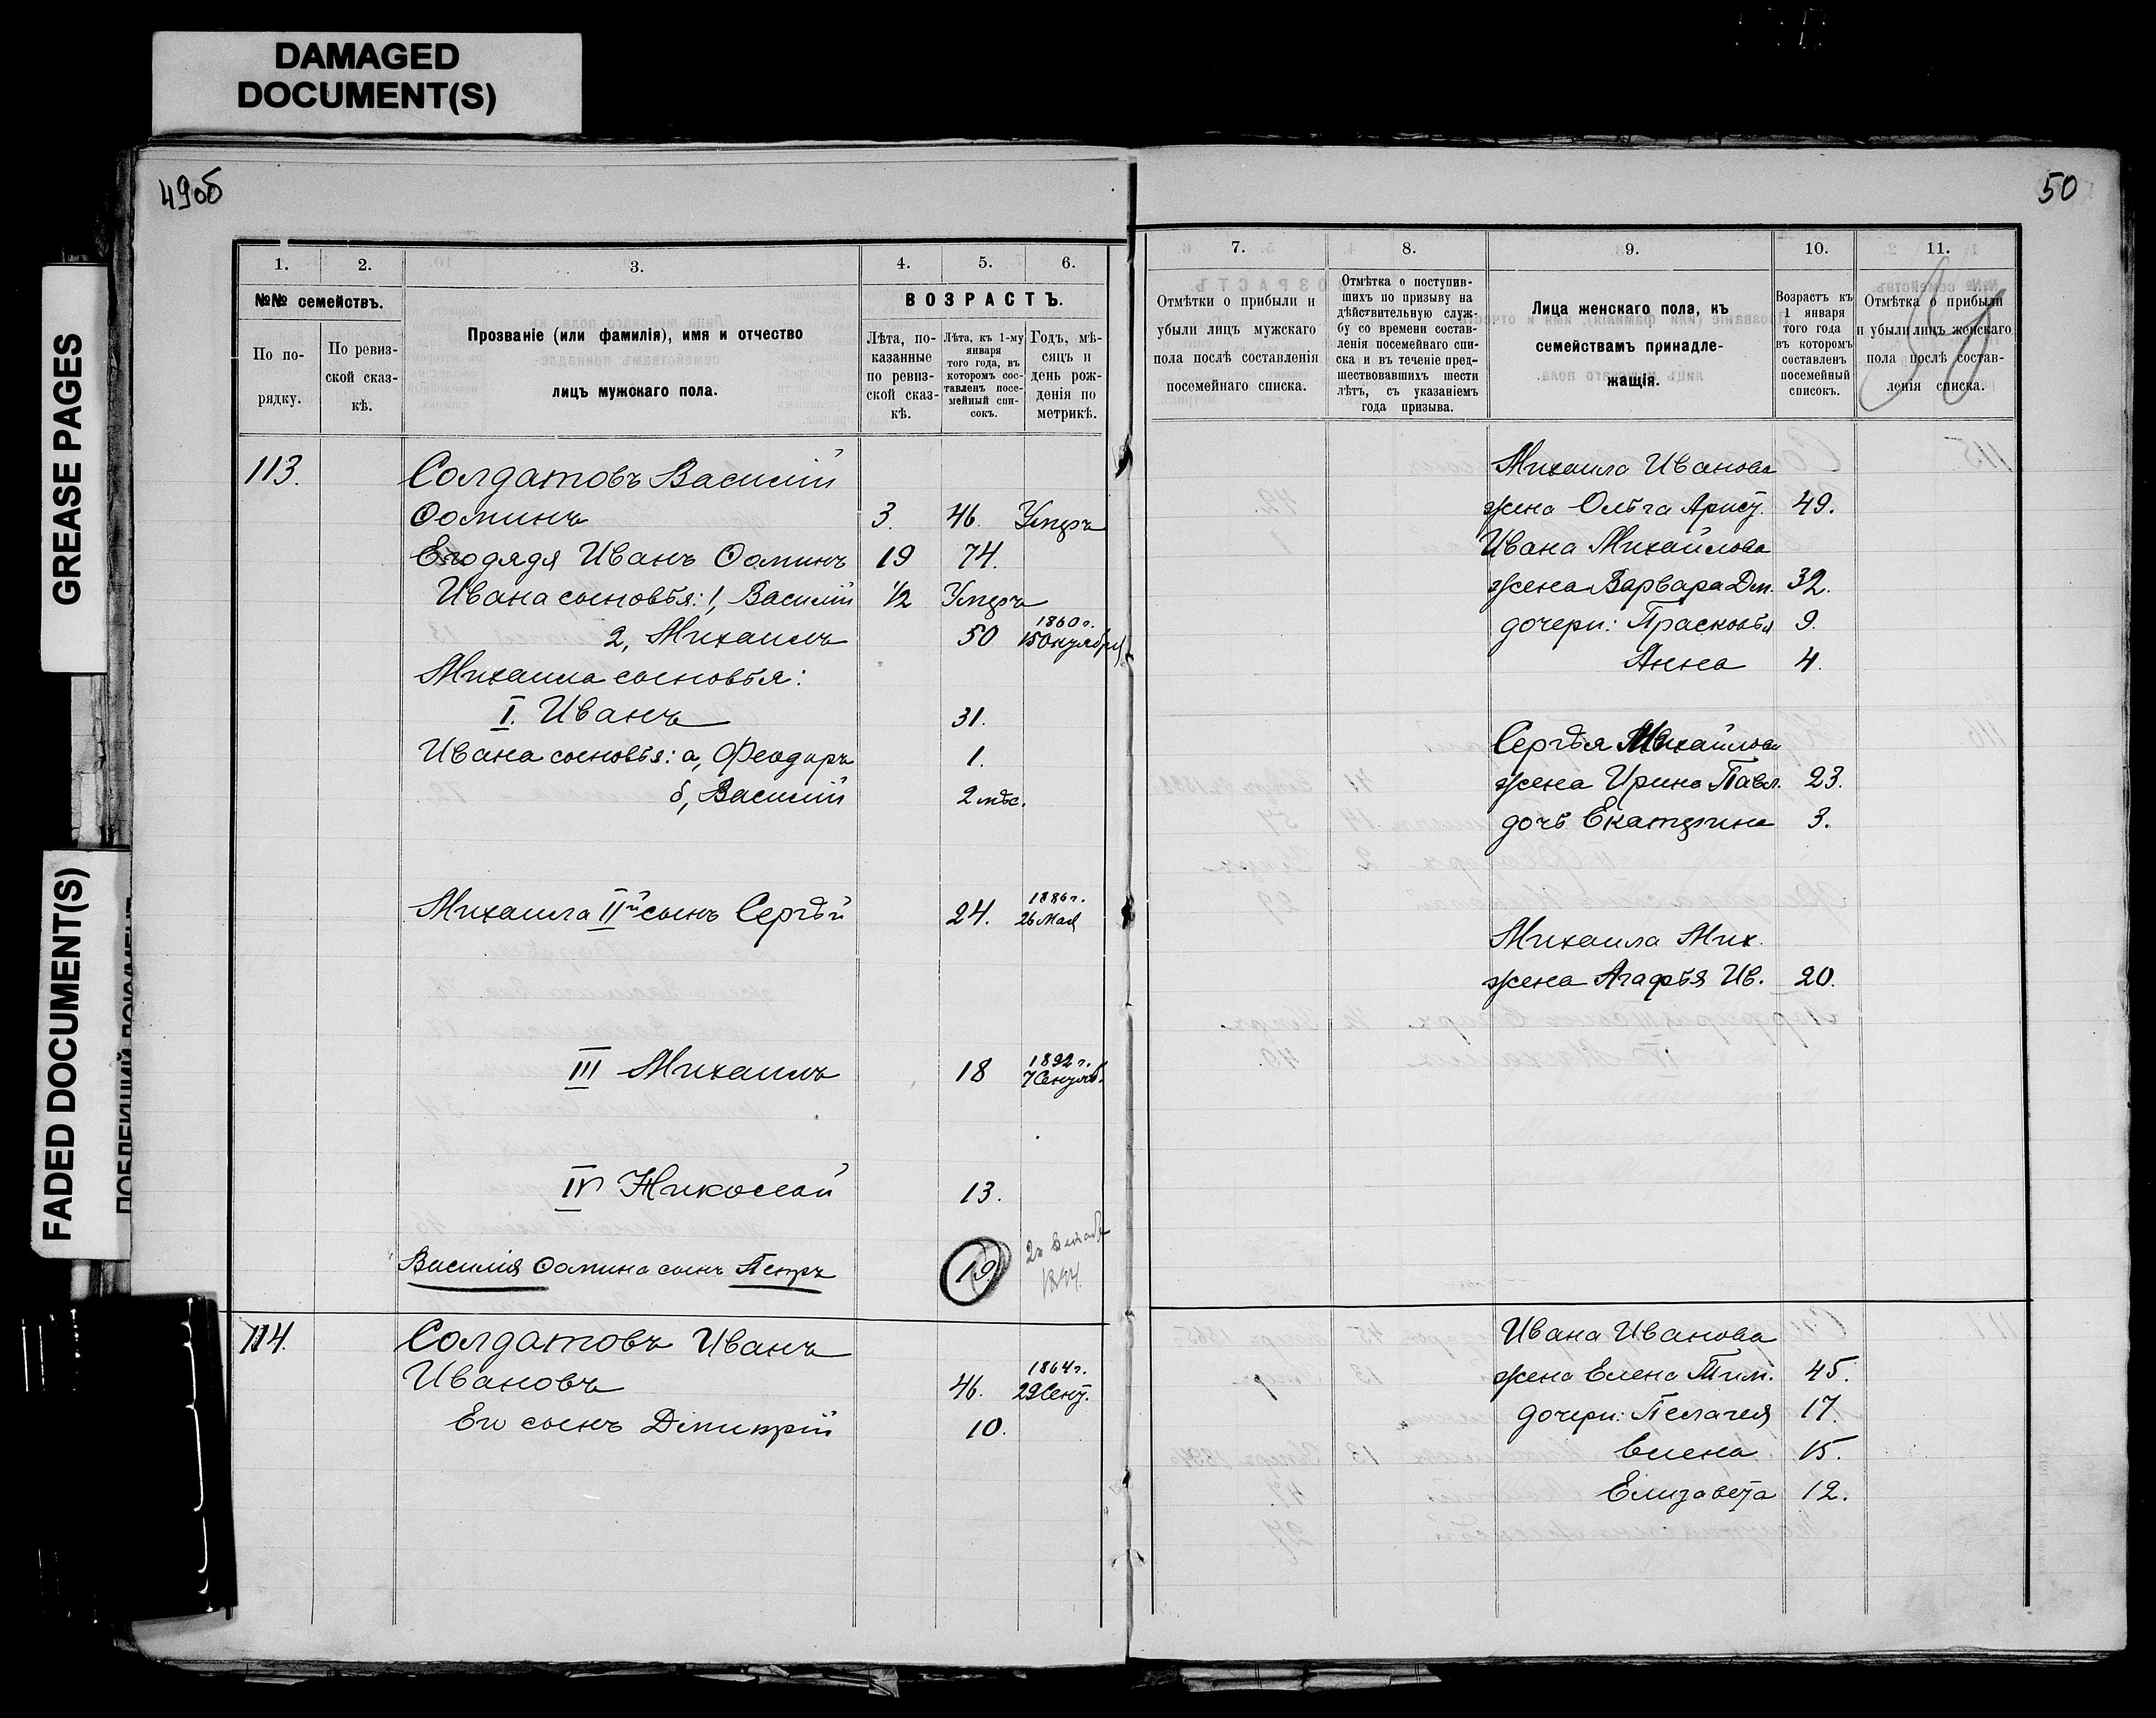 DAMAGED
DOCUMENT(S)
GREASE PAGES
FADED DOCUMENT(S)
49об
1. 2. 3. 4. 5. 6.
№№ семействъ.
По по-
рядку.
По ревиз-
ской сказ-
кѣ.
Прозваніе (или фамилія), имя и отчество
лицъ мужскаго пола.
ВОЗРАСТЪ.
Лѣта, по-
казанные
по ревиз-
ской сказ-
кѣ.
Лѣта, къ 1-му
января
того года, въ
которомъ сос-
тавленъ посе-
мейный спи-
сокъ.
Годъ, мѣ-
сяцъ и
день рож-
денія по
метрикѣ.
113. Солдатовъ Василій
Ѳоминъ 3. 46. Умеръ
Его дядя Иванъ Ѳоминъ 19 74.
Ивана сыновья: 1, Василій ½ Умеръ
1860г.
2, Михаилъ 50 15 Октября
Михаила сыновья:
I. Иванъ 31.
Ивана сыновья: а, Феодоръ 1.
б, Василій 2 мѣс.
1886г.
Михаила IIй сынъ Сергѣй 24. 26 Мая
1892г.
III Михаилъ 18 7 Сентяб.
IV Николай 13.
Василія Ѳомина сынъ Петръ 19
114. Солдатовъ Иванъ
1864г.
Ивановъ 46. 29 Сент.
Его сынъ Дмитрій 10.
50
7. 8. 9. 10. 11.
Отмѣтки о прибыли и
убыли лицъ мужскаго
пола послѣ составленія
посемейнаго списка.
Отмѣтка о поступив-
шихъ по призыву на
дѣйствительную служ-
бу со времени состав-
ленія посемейнаго спи-
ска и въ теченіе пред-
шествовавшихъ шести
лѣтъ, съ указаніемъ
года призыва.
Лица женскаго пола, къ
семействамъ принадле-
жащія.
Возрастъ къ
1 января
того года
въ которомъ
составленъ
посемейный
списокъ.
Отмѣтка о прибыли
и убыли лицъ женскаго
пола послѣ состав-
ленія списка.
Михаила Иванова
жена Ольга Арист. 49.
Ивана Михайлова
жена Варвара Дм. 32.
дочери: Прасковья 9.
Анна 4.
Сергѣя Михайлова
жена Ирина Павл. 23.
дочь Екатерина 3.
Михаила Мих.
жена Агафья Ив. 20.
Ивана Иванова
жена Елена Тим. 45.
дочери: Пелагея 17.
Елена 15.
Елизавета 12.